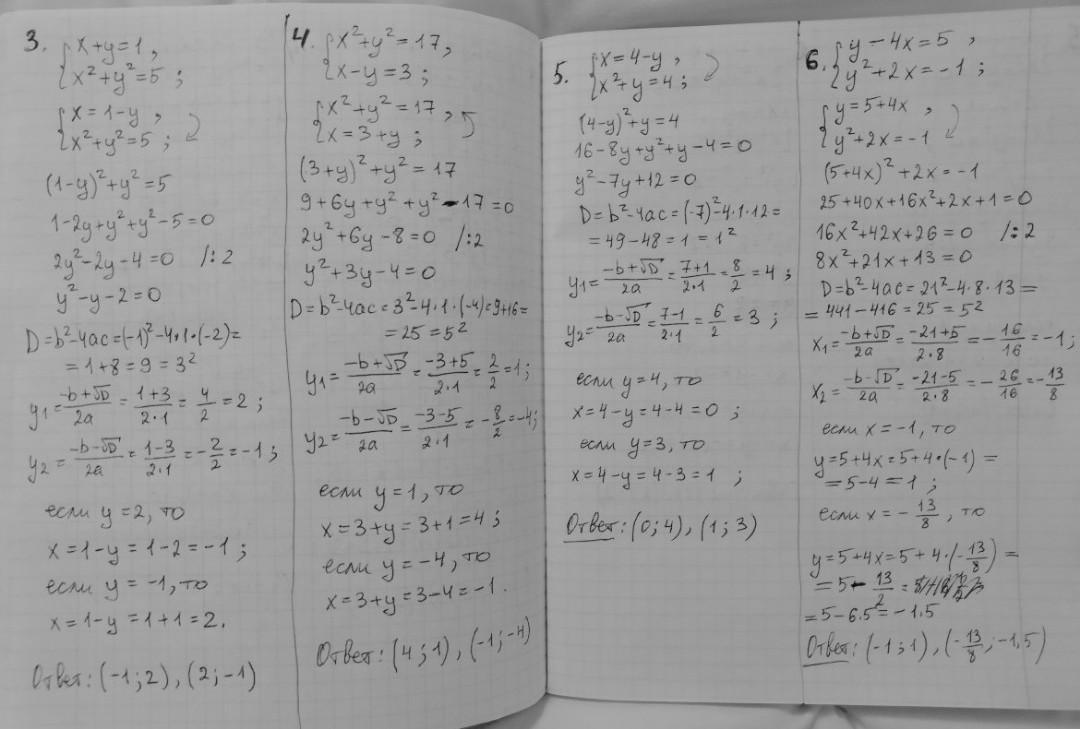 3. { x+y=1,
{ x²+y²=5;
{ x=1-y,
{ x²+y²=5;
(1-y)²+y²=5
1-2y+y²+y²-5=0
2y²-2y-4=0 /:2
y²-y-2=0
D=b²-4ac=(-1)²-4·1·(-2)=
=1+8=9=3²
y₁=(-b+√D)/2a=(1+3)/(2·1)=4/2=2;
y₂=(-b-√D)/2a=(1-3)/(2·1)=-2/2=-1;
если y=2, то
x=1-y=1-2=-1;
если y=-1, то
x=1-y=1+1=2.
Ответ: (-1;2), (2;-1)
4. { x²+y²=17,
{ x-y=3;
{ x²+y²=17,
{ x=3+y;
(3+y)²+y²=17
9+6y+y²+y²-17=0
2y²+6y-8=0 /:2
y²+3y-4=0
D=b²-4ac=3²-4·1·(-4)=9+16=
=25=5²
y₁=(-b+√D)/2a=(-3+5)/(2·1)=2/2=1;
y₂=(-b-√D)/2a=(-3-5)/(2·1)=-8/2=-4;
если y=1, то
x=3+y=3+1=4;
если y=-4, то
x=3+y=3-4=-1.
Ответ: (4;1), (-1;-4)
5. { x=4-y,
{ x²+y=4;
(4-y)²+y=4
16-8y+y²+y-4=0
y²-7y+12=0
D=b²-4ac=(-7)²-4·1·12=
=49-48=1=1²
y₁=(-b+√D)/2a=(7+1)/(2·1)=8/2=4;
y₂=(-b-√D)/2a=(7-1)/(2·1)=6/2=3;
если y=4, то
x=4-y=4-4=0;
если y=3, то
x=4-y=4-3=1;
Ответ: (0;4), (1;3)
6. { y-4x=5,
{ y²+2x=-1;
{ y=5+4x,
{ y²+2x=-1
(5+4x)²+2x=-1
25+40x+16x²+2x+1=0
16x²+42x+26=0 /:2
8x²+21x+13=0
D=b²-4ac=21²-4·8·13=
=441-416=25=5²
x₁=(-b+√D)/2a=(-21+5)/(2·8)=-16/16=-1;
x₂=(-b-√D)/2a=(-21-5)/(2·8)=-26/16=-13/8
если x=-1, то
y=5+4x=5+4·(-1)=
=5-4=1;
если x=-13/8, то
y=5+4x=5+4·(-13/8)=
=5-13/2=
=5-6.5=-1.5
Ответ: (-1;1), (-13/8;-1,5)